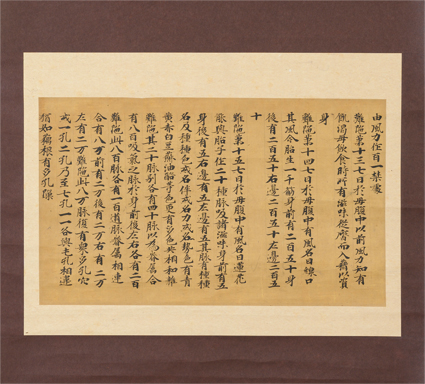 由風力住百一禁處
難陁第十三七日於母腹中以前風力知有
飢渴母飲食時所有滋味從臍而入藉以資
身
難陁第十四七日於母腹中有風名曰線口
其風令胎生一千筋身前有二百五十身
後有二百五十右邊二百五十左邊二百五
十
難陁第十五七日於母腹中有風名曰蓮花
能與胎子作二十種脉吸諸滋味身前有五
身後有五右邊有五左邊有五其脉有種種
名及種種色或名伴或名力或名勢色有青
黃赤白豆蘇油酪等色更有多色共相和雜
難陁其二十脉別各有四十脉以為眷屬合
有八百吸氣之脉於身前後左右各有二百
難陁此八百脉各有一百道脉眷屬相連
合有八万前有二万後有二万右有二万
左有二万難陁此八万脉復有衆多孔穴
或一孔二孔乃至七孔一一各與毛孔相連
猶如藕根有多孔隙